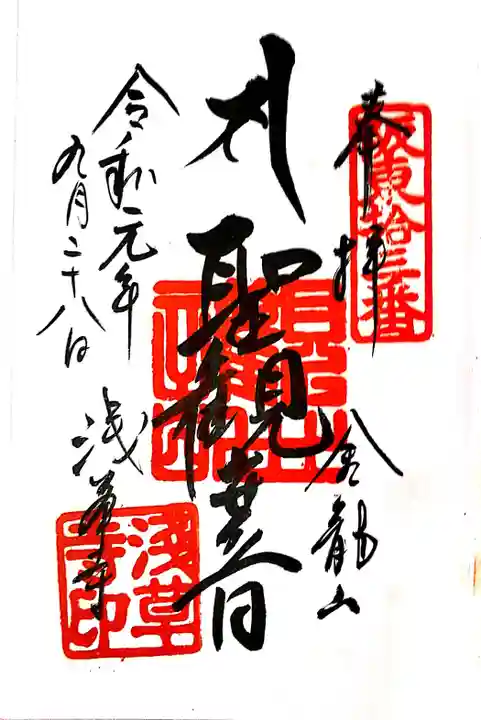 奉拝
坂東拾三番
金龍山
聖観世音
令和元年
九月二十八日
浅草寺
浅草
寺印